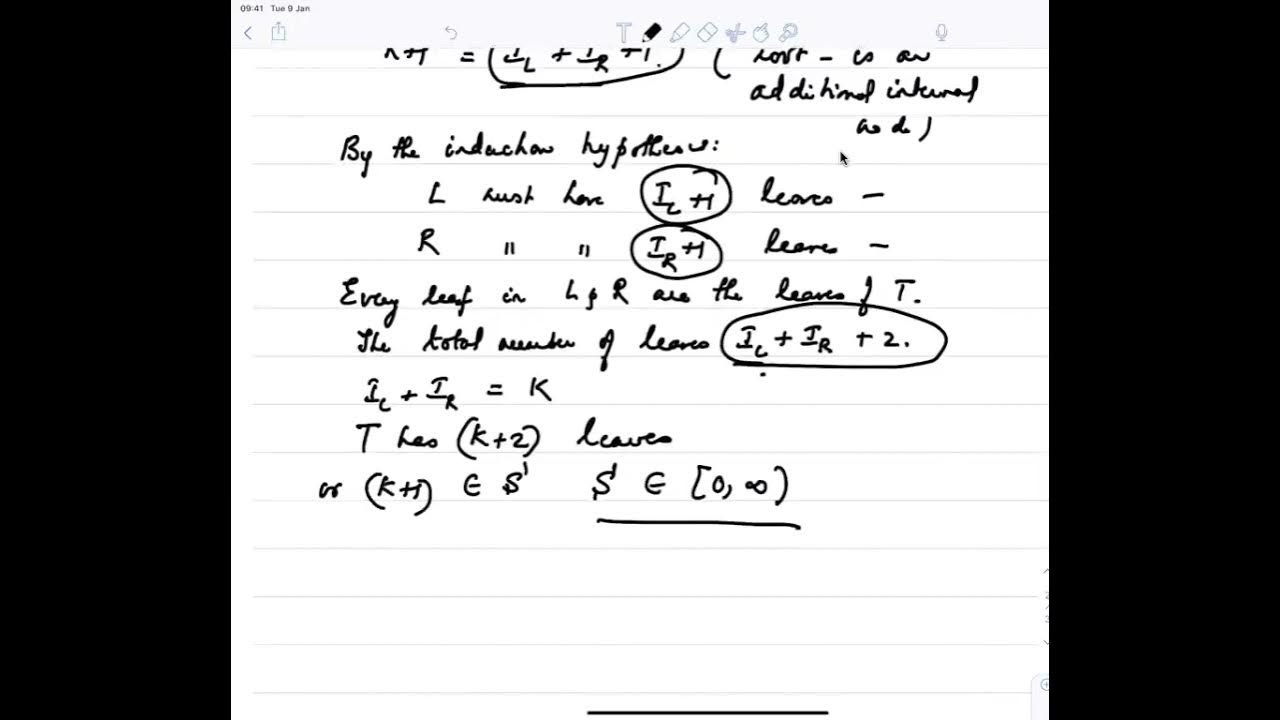 09:41 Tue 9 Jan
K+1 = (I_L + I_R + 1.) (root - is an
additional internal
node)
By the induction hypothesis:
L must have I_L +1 leaves -
R " " I_R +1 leaves -
Every leaf in L & R are the leaves of T.
The total number of leaves I_L + I_R + 2.
I_L + I_R = K
T has (K+2) leaves
or (K+1) ∈ S' S' ∈ [0, ∞)